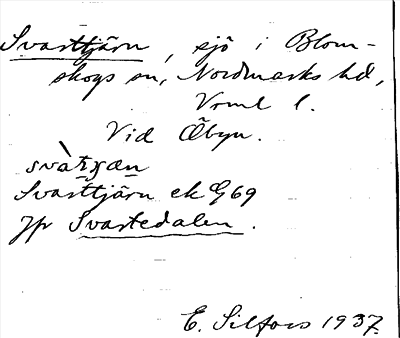 Svarttjärn, sjö i Blom-
skogs sn, Nordmarks hd,
Vrml l.
Vid Åbyn.
Svarttjärn ek G69
Jfr Svartedalen.
E. Silfors 1937.